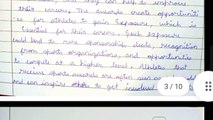 their career. The awards create opportunities
for athlete to gain exposure, which is
essential for their career. Such exposure
could lead to more sponsorship deals, recognition
from sports organizations, and opportunities
to compete at a higher level. Athletes that
receive sports awards are often seen as role models
and can inspire others to get involved
3 / 10